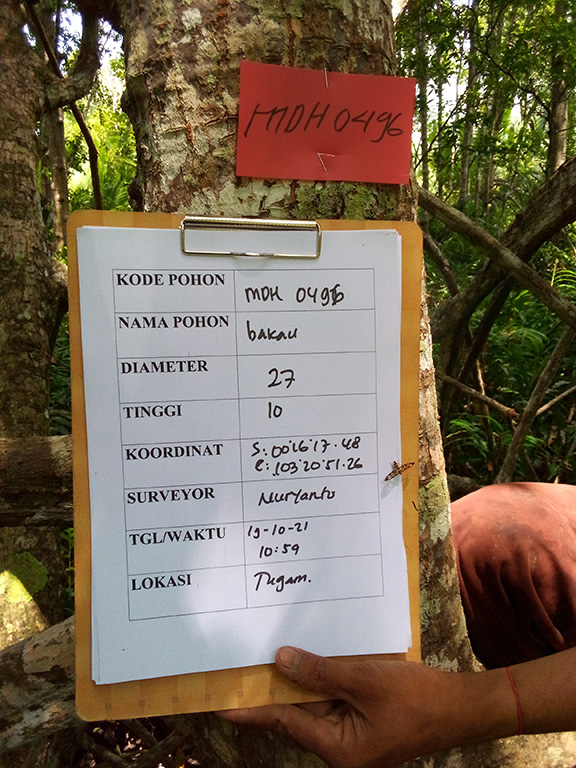 MDH 0496
KODE POHON MDH 0496
NAMA POHON bakau
DIAMETER 27
TINGGI 10
KOORDINAT S: 00°16'17.48
E: 103°20'51.26
SURVEYOR Nuryanto
TGL/WAKTU 19-10-21
10:59
LOKASI Tugam.